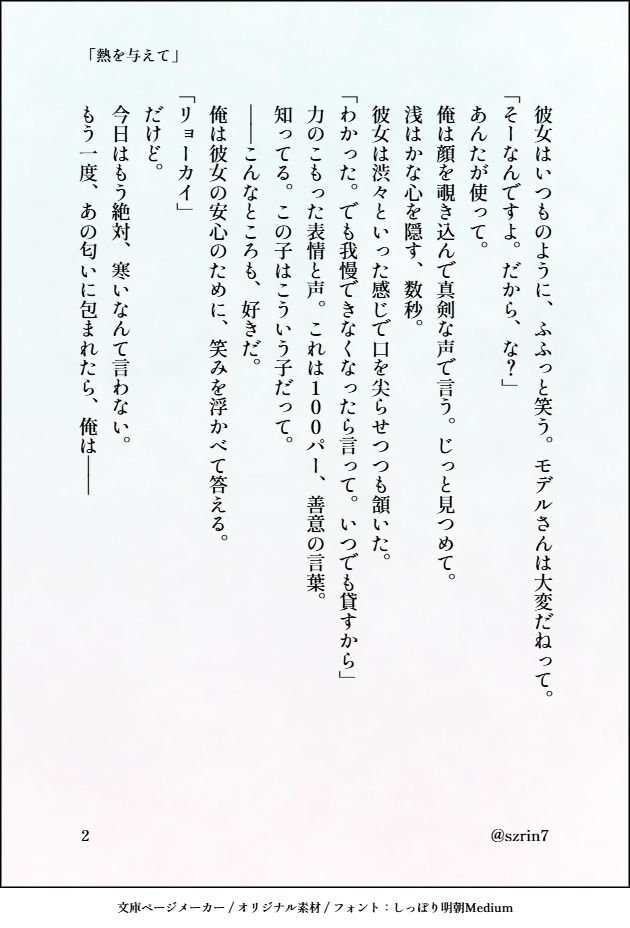 「熱を与えて」
彼女はいつものように、ふふっと笑う。モデルさんは大変だねって。
「そーなんですよ。だから、な?」
あんたが使って。
俺は顔を覗き込んで真剣な声で言う。じっと見つめて。
浅はかな心を隠す、数秒。
彼女は渋々といった感じで口を尖らせつつも頷いた。
「わかった。でも我慢できなくなったら言って。いつでも貸すから」
力のこもった表情と声。これは100パー、善意の言葉。
知ってる。この子はこういう子だって。
――こんなところも、好きだ。
俺は彼女の安心のために、笑みを浮かべて答える。
「リョーカイ」
だけど。
今日はもう絶対、寒いなんて言わない。
もう一度、あの匂いに包まれたら、俺は――
2
@szrin7
文庫ページメーカー / オリジナル素材 / フォント:しっぽり明朝Medium